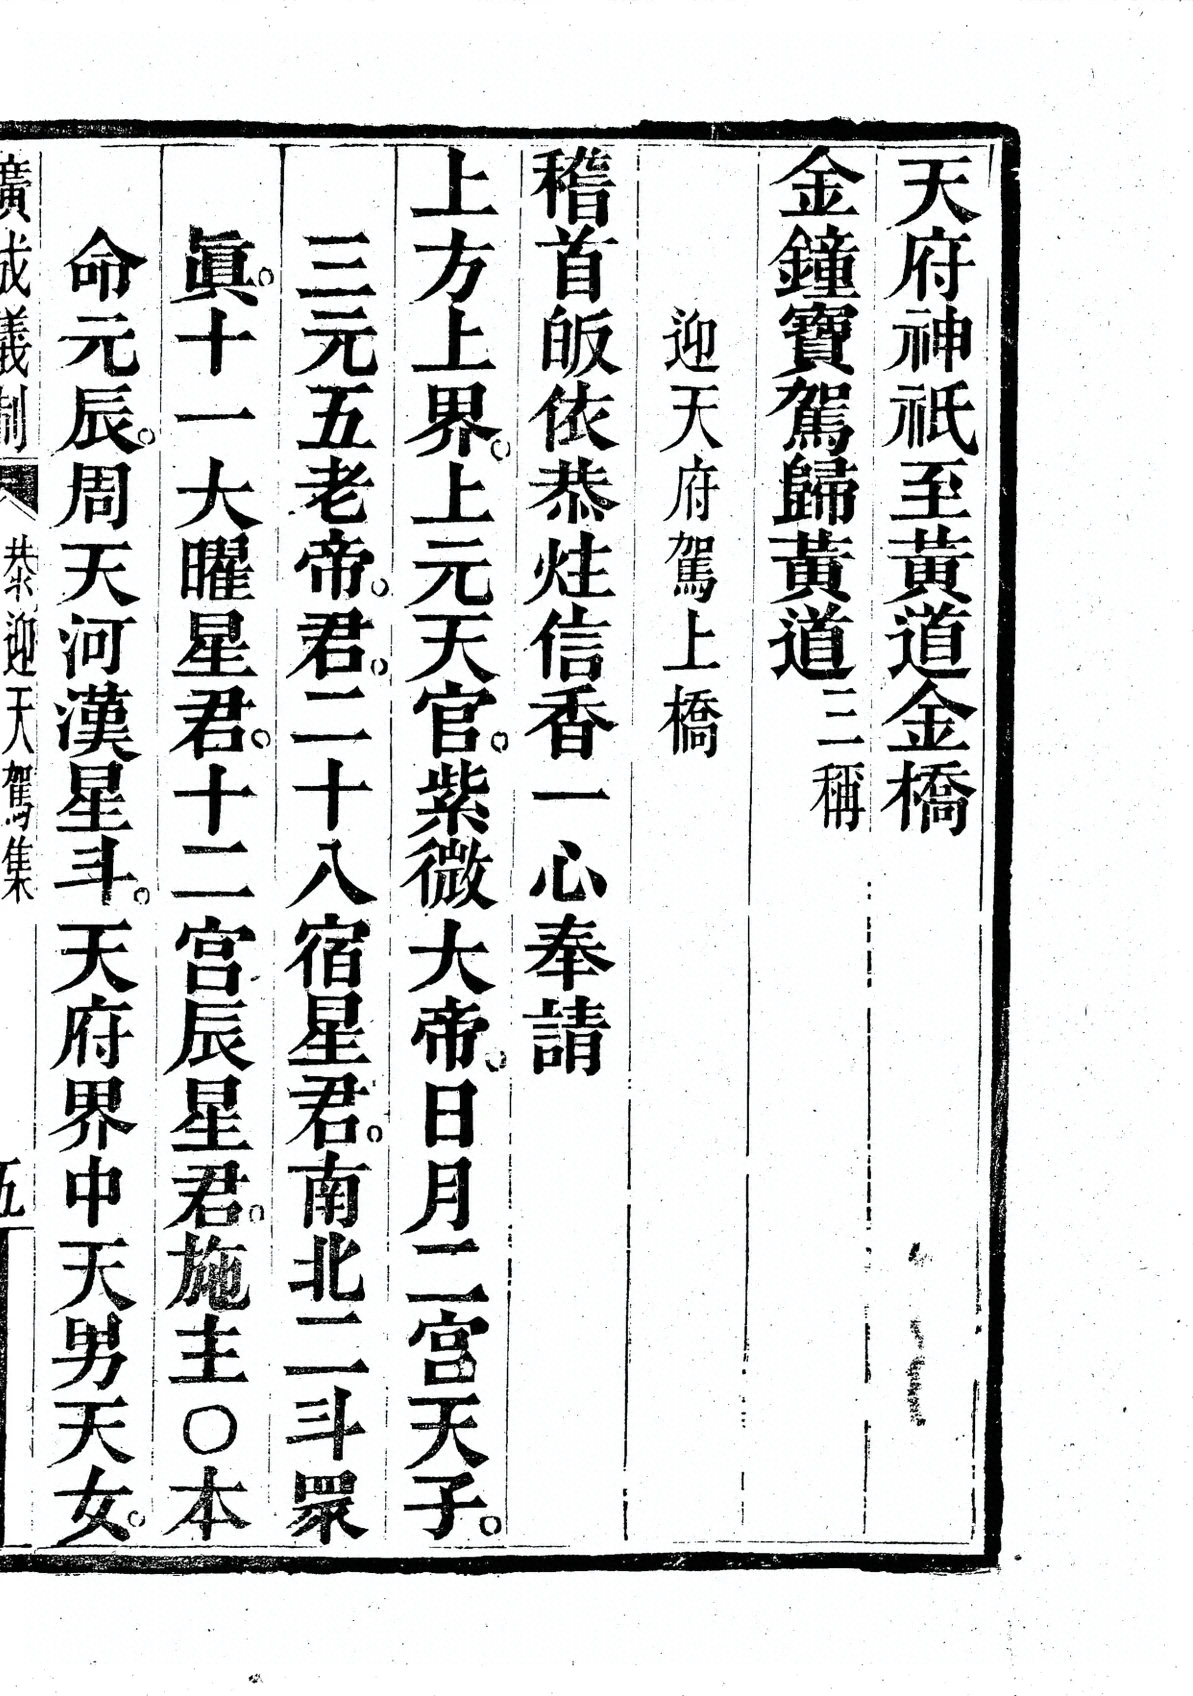 天府神祇至黃道金橋
金鐘寶駕歸黃道三稱
迎天府駕上橋
稽首皈依恭炷信香一心奉請
上方上界。上元天官。紫微大帝。日月二宮天子。
三元五老帝。君。二十八宿星君。南北二斗眾
眞。十一大曜星君。十二宮辰星君。施主〇本
命元辰。周天河漢星斗。天府界中天男天女。
廣成儀制 恭迎天駕集 五